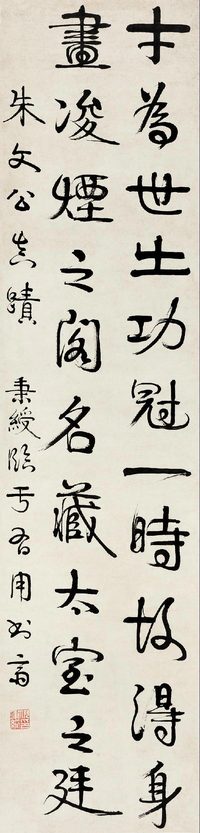 才為世出功冠一時故得身
畫凌煙之閣名藏太室之廷
朱文公真蹟 秉綬臨于有用書齋